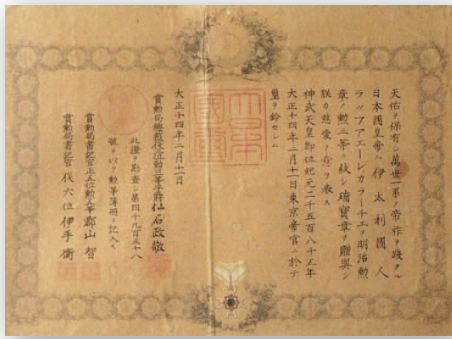 天佑ヲ保有シ萬世一系ノ帝祚ヲ踐タル
日本國皇帝ハ伊太利國人
ラッファエーレカラーチエヲ明治勲
章ノ勲三等ニ敍シ瑞寶章ヲ贈與シ
朕カ慈愛ノ意ヲ表ス
神武天皇即位紀元二千五百八十五年
大正十四年二月十一日東京帝宮ニ於テ
璽ヲ鈐セシム
大日本國璽
大正十四年二月十一日
賞勲局總裁從三位勲二等子爵仙石政敬
此證ヲ勘査シ第四十九百三十八
號ヲ以テ勲等簿册ニ記入ス
賞勲局書記官正五位勲五等郡山智
賞勲局書記官從六位伊手衞